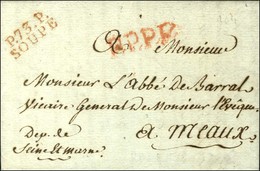 P.73.P.
SOUPE
P.P.P.P.
A Monsieur
Monsieur L'Abbé De Barral
Vicaire General de Monsieur l'Evêque
Dep. de
Seine et marne
a meaux